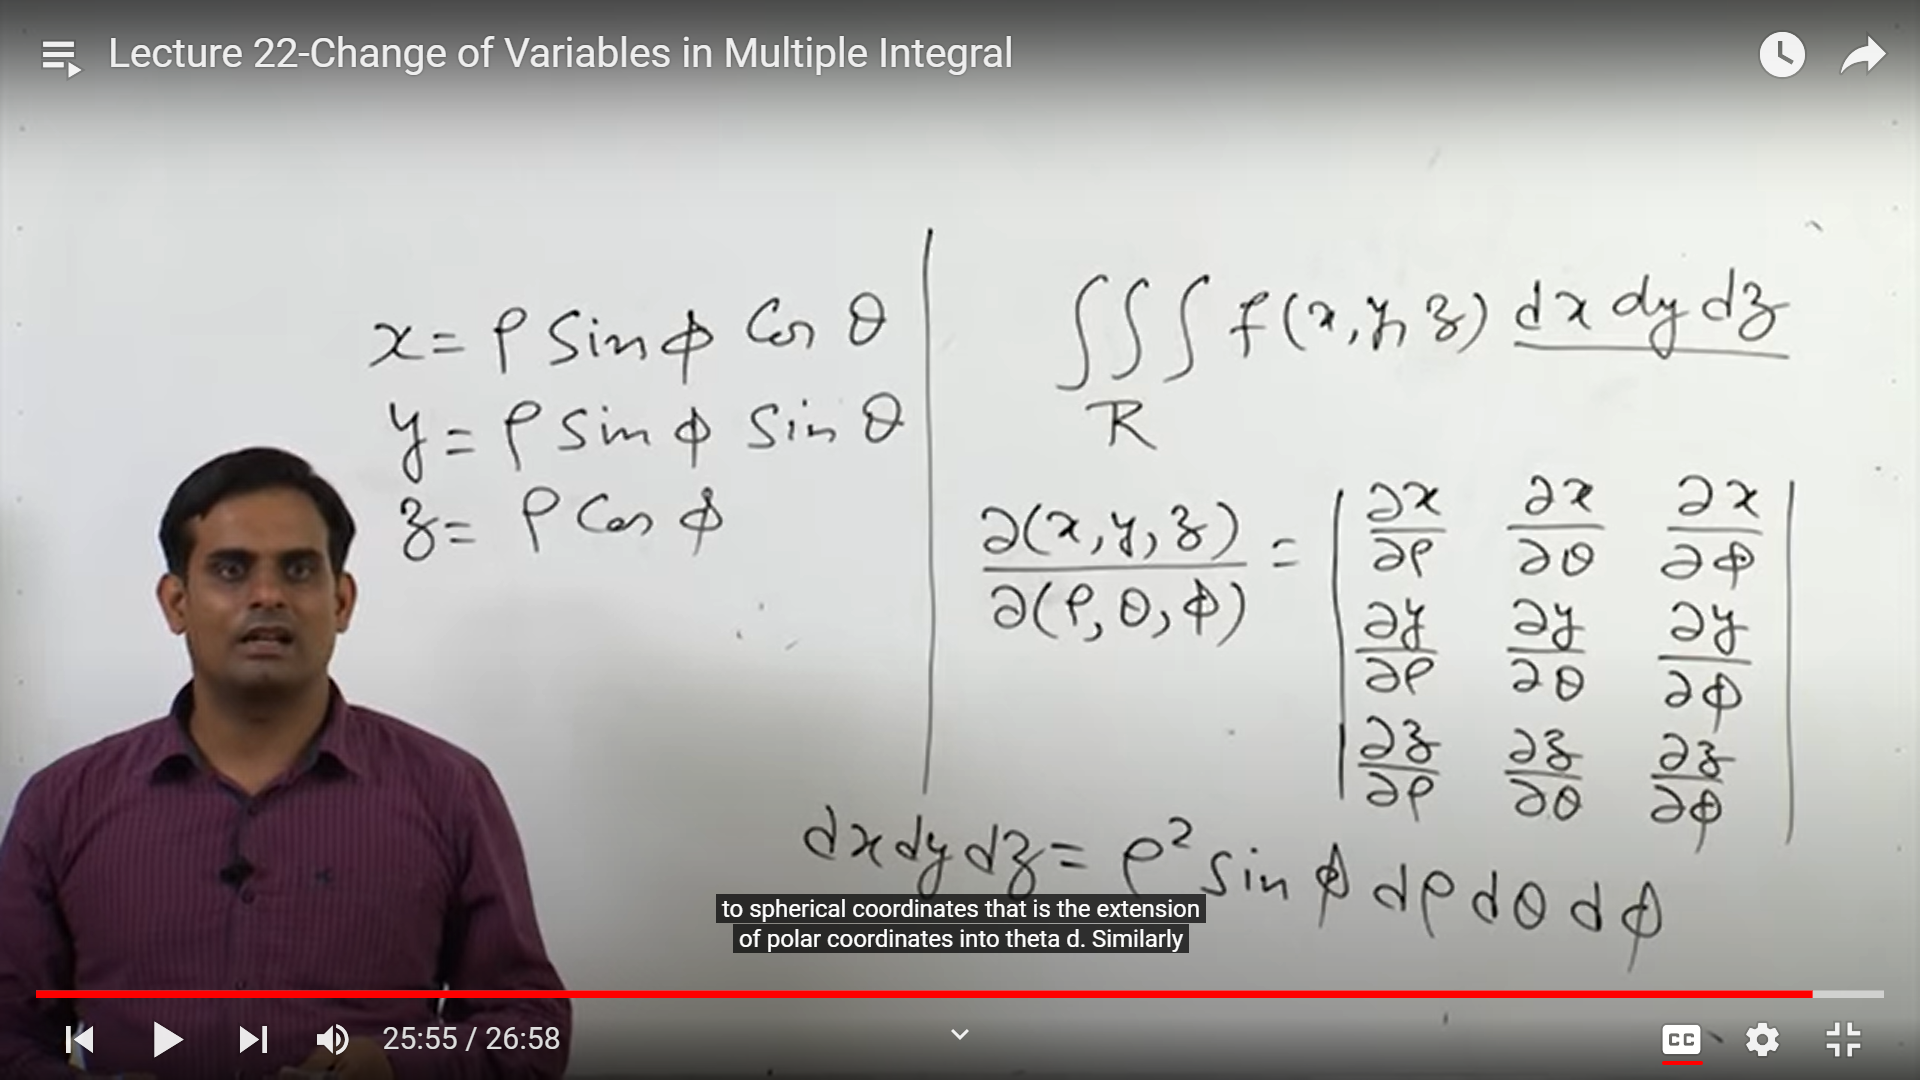 Lecture 22-Change of Variables in Multiple Integral
x = ρ Sin ϕ Cos θ
y = ρ Sin ϕ Sin θ
z = ρ Cos ϕ
∫∫∫ f(x, y, z) dx dy dz
R
∂(x, y, z) / ∂(ρ, θ, ϕ) = | ∂x/∂ρ ∂x/∂θ ∂x/∂ϕ |
| ∂y/∂ρ ∂y/∂θ ∂y/∂ϕ |
| ∂z/∂ρ ∂z/∂θ ∂z/∂ϕ |
dx dy dz = ρ² Sin ϕ dρ dθ dϕ
to spherical coordinates that is the extension
of polar coordinates into theta d. Similarly
25:55 / 26:58
CC